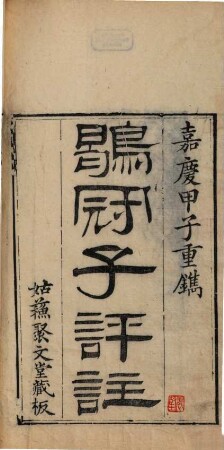 嘉慶甲子重鐫
鶡冠子評註
姑蘓聚文堂藏板